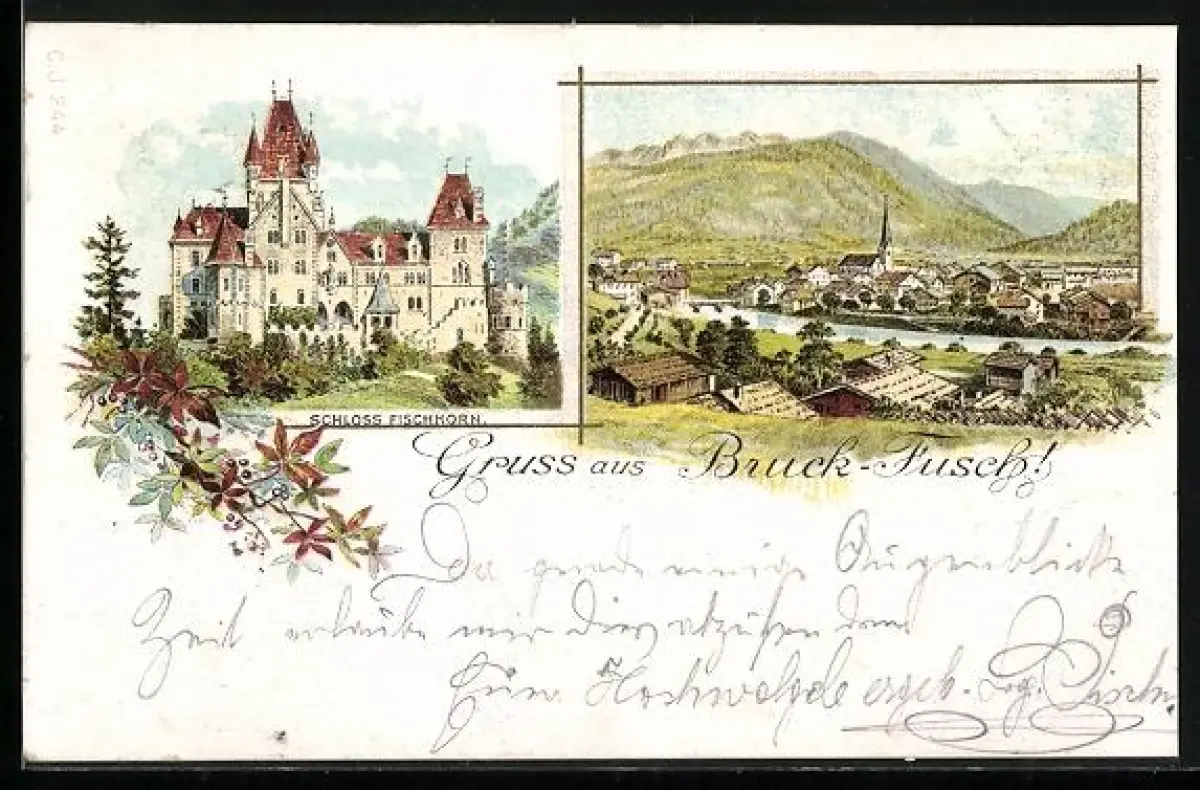 C.J. 244
SCHLOSS FISCHHORN.
Gruss aus Bruck-Fusch!
Da gerade einige Augenblicke
Zeit erlaube mir dies
Hochwolgeb ergeb.